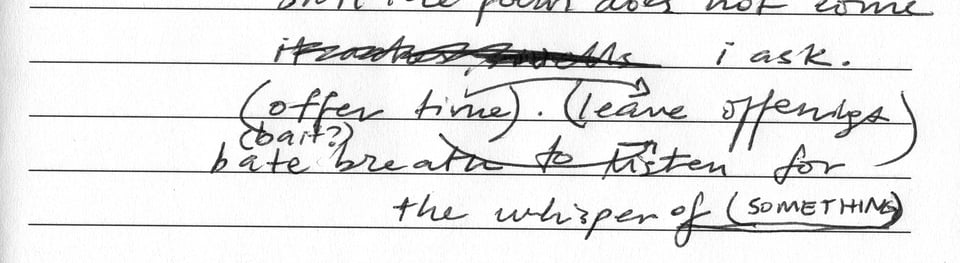 poem does not come
i ask.
(offer time). (leave offerings)
(bait?)
bate breath to listen for
the whisper of (SOMETHING)